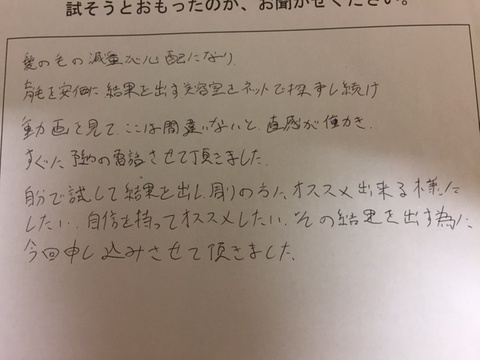 試そうとおもったのか、お聞かせください。
髪の毛の減量が心配になり
育毛を安価に結果を出す美容室をネットで探し続け
動画を見て、ここは間違いないと、直感が働き、
すぐに予約の電話させて頂きました。
自分で試して結果を出し、周りの方に、オススメ出来る様に
したい。自信を持ってオススメしたい。その結果を出す為に、
今回申し込みさせて頂きました。